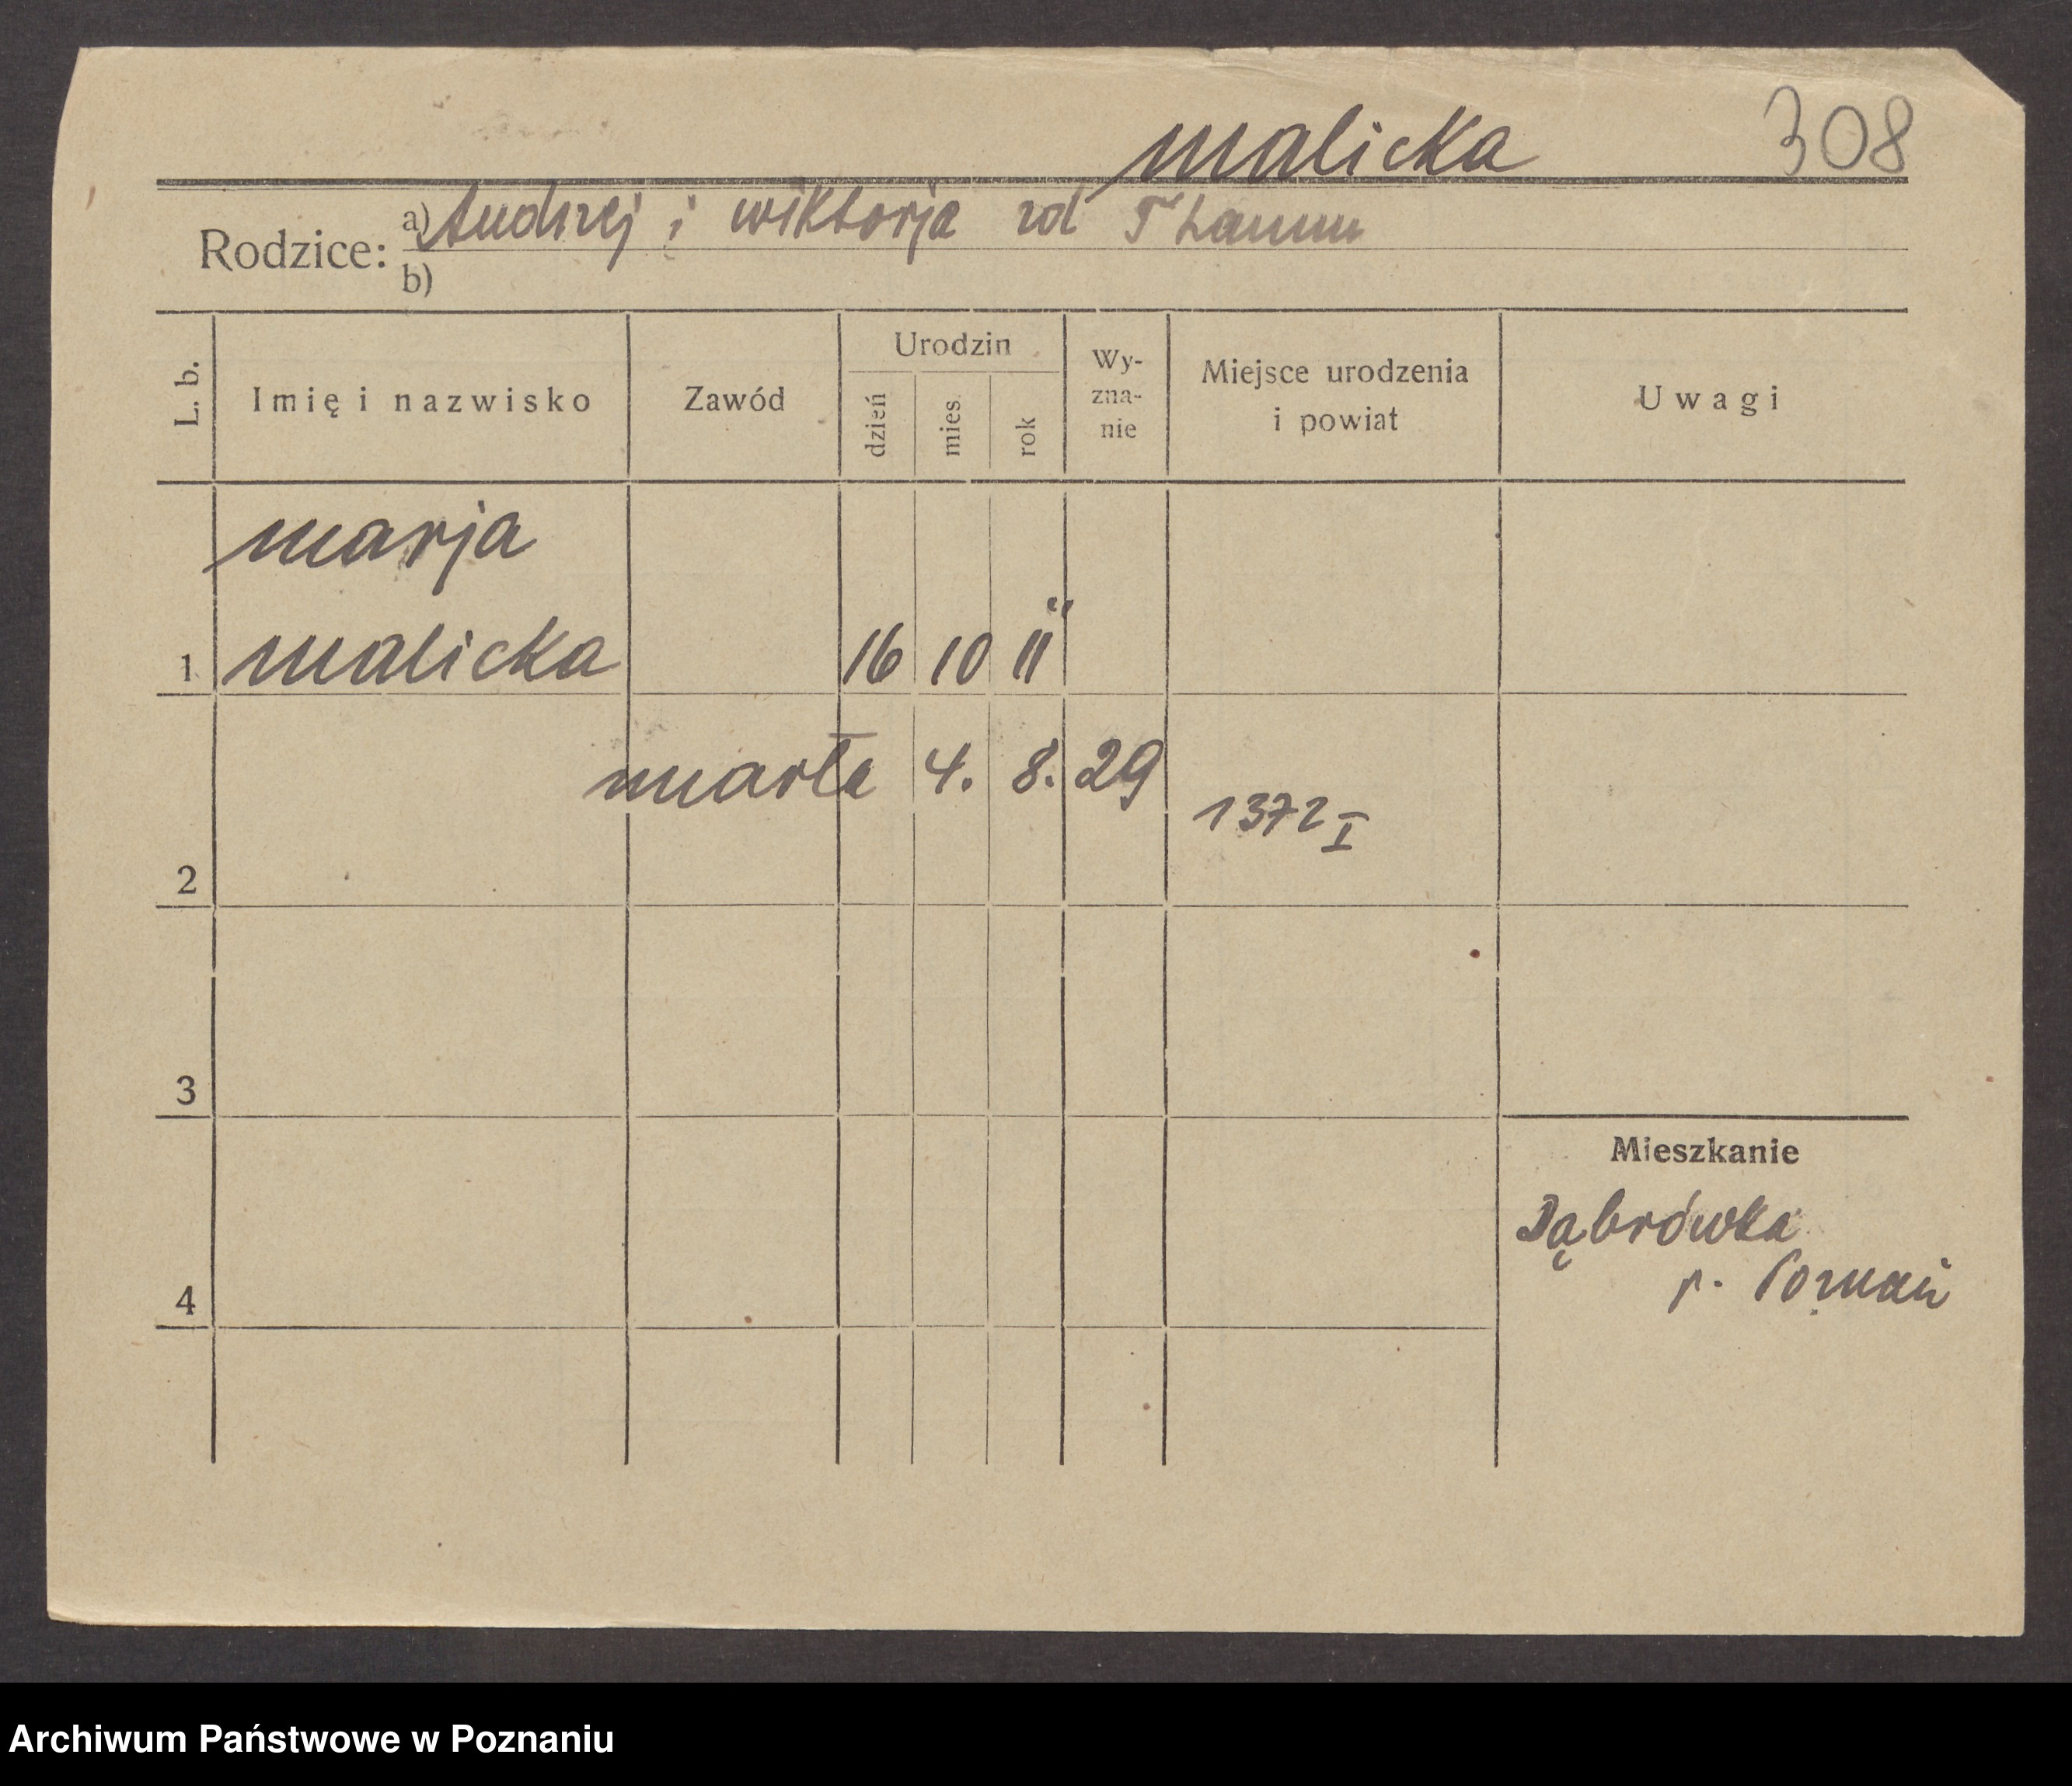 malicka 308
Rodzice: a) Andrzej i wiktorja rd Thamm
b)
L. b. Imię i nazwisko Zawód Urodzin dzień mies. rok Wy-zna-nie Miejsce urodzenia i powiat Uwagi
marja
1 malicka 16 10 11
marła 4. 8. 29
1372 I
2
3
Mieszkanie
Dąbrówka
p. Poznań
4
Archiwum Państwowe w Poznaniu